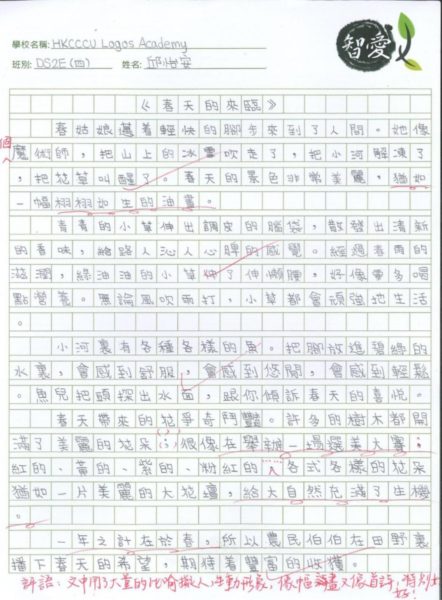 智愛
學校名稱: HKCCCU Logos Academy
班別: DS2E (四) 姓名: 邱怡雯
《春天的來臨》
春姑娘邁着輕快的腳步來到了人間。她像
個
魔術師，把山上的冰雪吹走了，把小河解凍了
，把花草叫醒了。春天的景色非常美麗，猶如
一幅栩栩如生的油畫。
青青的小草伸出調皮的腦袋，散發出清新
的香味，給路人沁人心脾的感覺。經過春雨的
滋潤，綠油油的小草伸了伸懶腰，好像要多喝
點營養。無論風吹雨打，小草都會頑強地生活
。
小河裏有各種各樣的魚。把腳放進碧綠的
水裏，會感到舒服，會感到悠閒，會感到輕鬆
。魚兒把頭探出水面，跟你傾訴春天的喜悅。
春天帶來的花爭奇鬥豔。許多的樹木都開
滿了美麗的花朵；很像在舉辦一場選美大賽；
紅的、黃的、紫的、粉紅的、各式各樣的花朵
猶如一片美麗的大花壇，給大自然充滿了生機
。
一年之計在於春，所以農民伯伯在田野裏
播下春天的希望，期待着豐富的收獲。
評語：文中用了大量的比喻擬人，生動形象，像幅畫又像首詩，特別好！